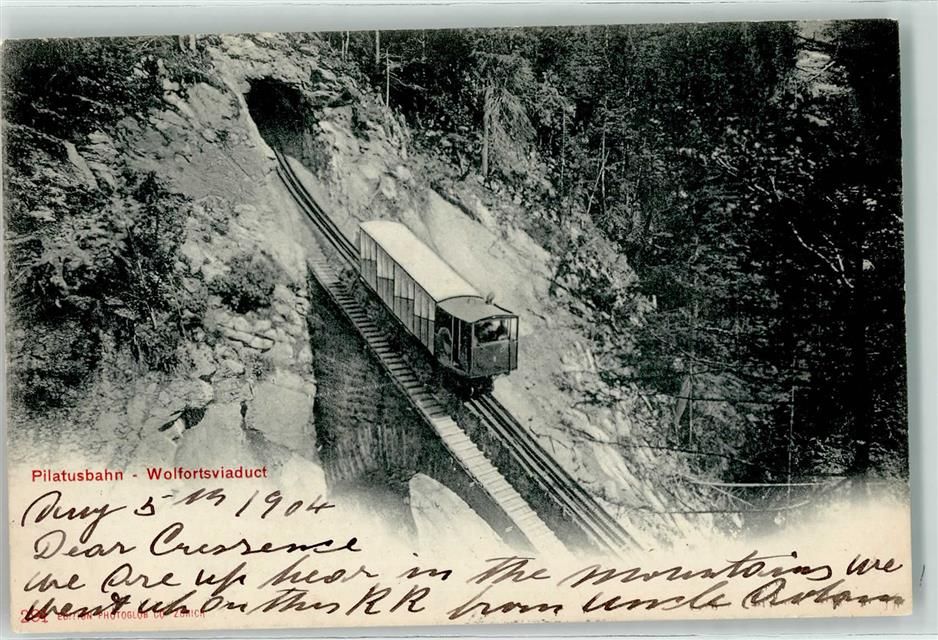 Pilatusbahn - Wolfortsviaduct
Aug 5th 1904
Dear Cressence
we are up hear in the mountains we
went up on this RR from uncle Adam
EDITION PHOTOGLOB CO ZÜRICH